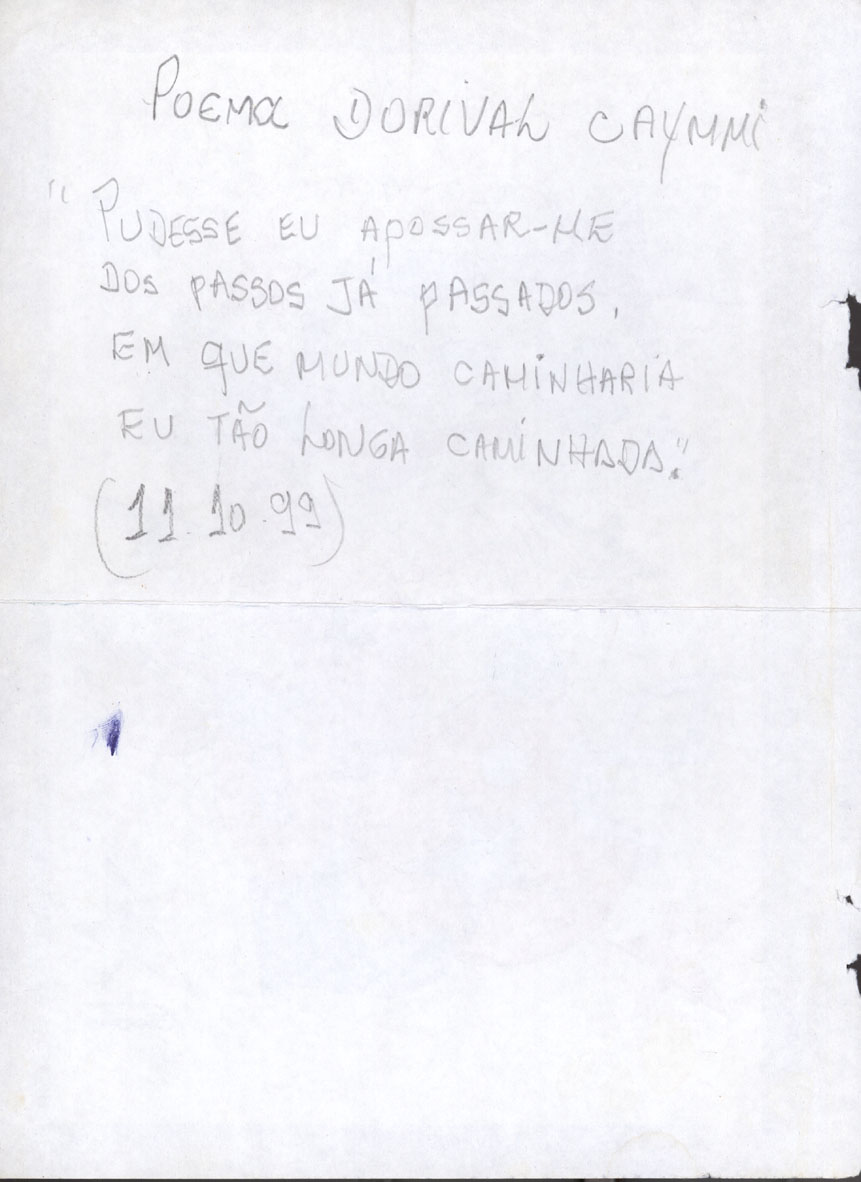 POEMA DORIVAL CAYMMI
"PUDESSE EU APOSSAR-ME
DOS PASSOS JÁ PASSADOS,
EM QUE MUNDO CAMINHARIA
EU TÃO LONGA CAMINHADA."
(11.10.99)